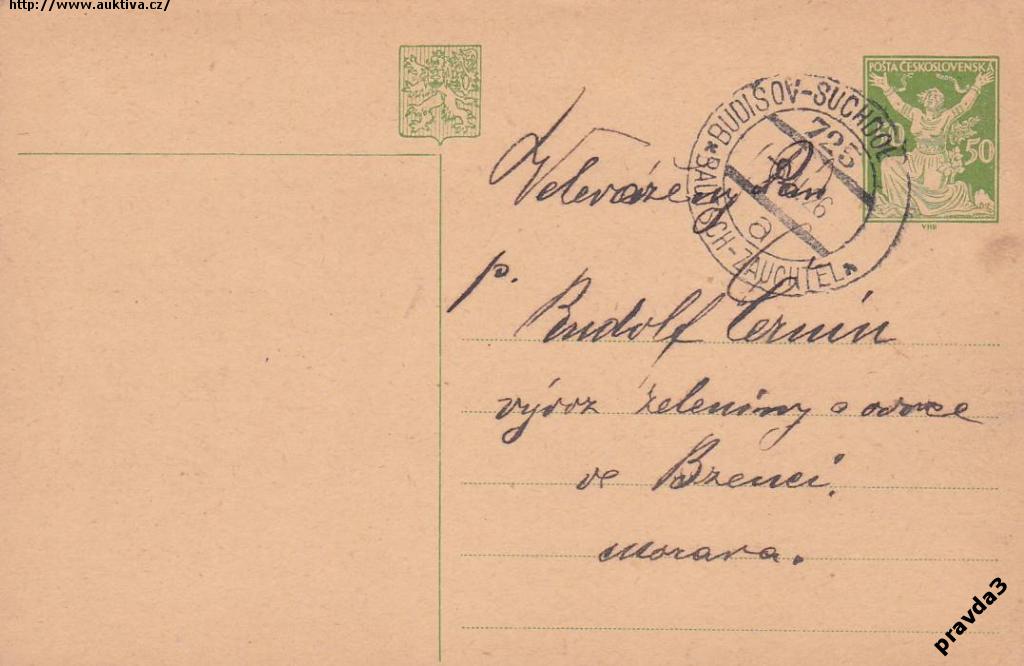 http://www.auktiva.cz/
POŠTA ČESKOSLOVENSKÁ
50
BUDIŠOV-SUCHDOL
725
26
a
*BAUTSCH-ZAUCHTEL*
Velevážený Pán
p. Rudolf Černín
vývoz zeleniny a ovoce
ve Bzenci.
Morava.
pravda3